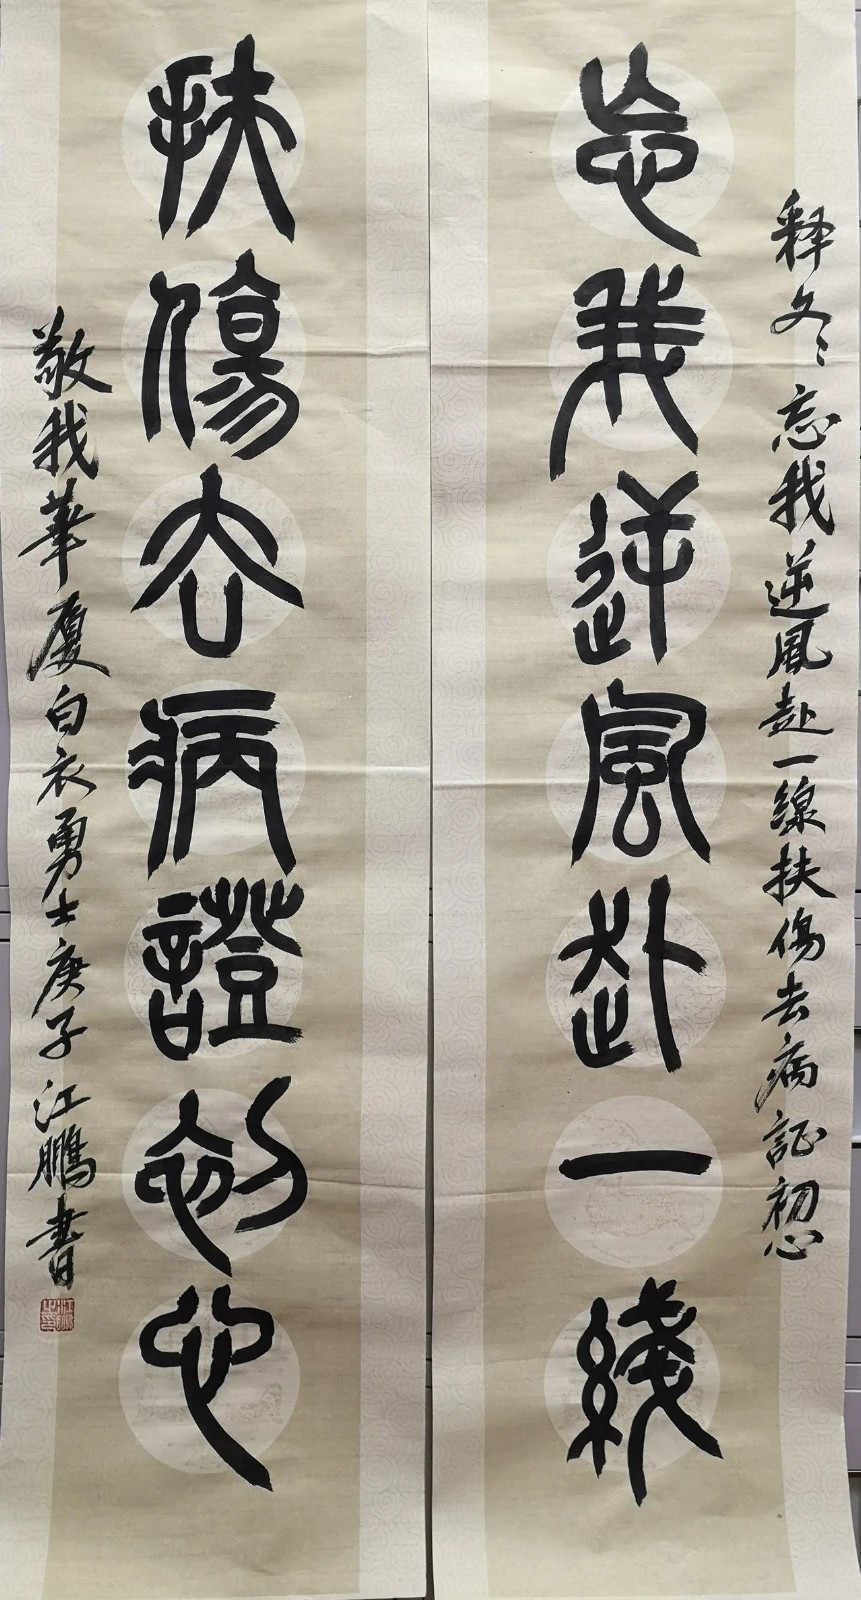 释文：忘我逆風赴一線扶傷去病証初心
忘我逆風赴一綫
扶傷去病證初心
敬我華厦白衣勇士庚子江鵬書